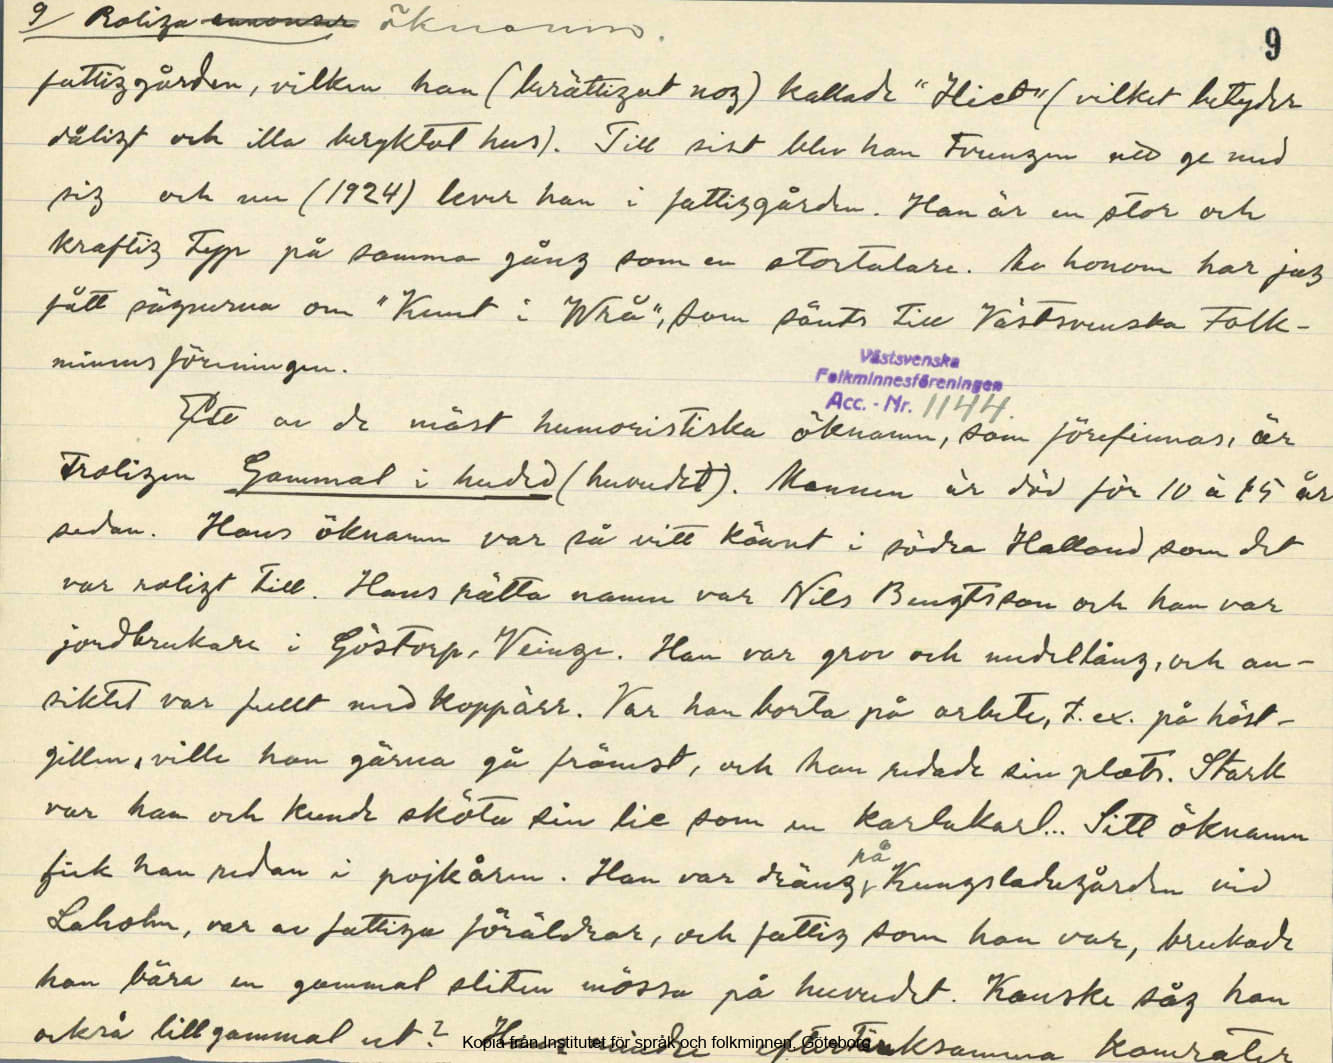 9/ Roliga annonser öknamn.
9
fattiggården, vilken han (berättigat nog) kallade "Hiet" (vilket betyder
dåligt och illa beryktat hus). Till sist blev han tvungen att ge med
sig och nu (1924) lever han i fattiggården. Han är en stor och
kraftig typ på samma gång som en stortalare. Av honom har jag
fått sägnerna om "Knut i Wrå", som sänts till Västsvenska Folk-
minnesföreningen.
Västsvenska
Folkminnesföreningen
Acc. - Nr. 1144.
Ett av de mäst humoristiska öknamn, som förefinnas, är
troligen Gammal i huded (huvudet). Mannen är död för 10 à 15 år
sedan. Hans öknamn var så vitt känt i södra Halland som det
var roligt till. Hans rätta namn var Nils Bengtsson och han var
jordbrukare i Göstorp, Veinge. Han var grov och medellång, och an-
siktet var fullt med koppärr. Var han borta på arbete, t. ex. på höst-
gillen, ville han gärna gå främst, och han redade sin plats. Stark
var han och kunde sköta sin lie som en karlakarl... Sitt öknamn
fick han redan i pojkåren. Han var dräng på Kungsladugården vid
Laholm, var av fattiga föräldrar, och fattig som han var, brukade
han bära en gammal sliten mössa på huvudet. Kanske såg han
också lillgammal ut? Hans mindre eftertänksamma kamrater
Kopia från Institutet för språk och folkminnen, Göteborg